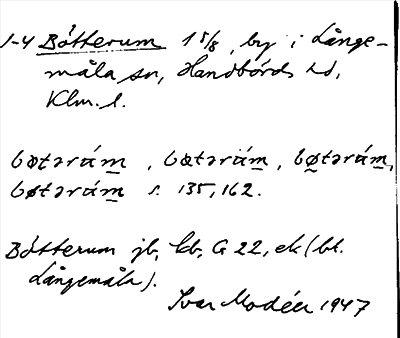 1-4 Bötterum 1 5/8, by i Långe-
måla sn, Handbörds hd,
Klm. l.
bøtərám̲, bœtərám̲, bø̲tərám̲,
bøtərám̲ s. 135, 162.
Bötterum jb, kb, G 22, ek (bl.
Långemåla).
Ivar Modéer 1947